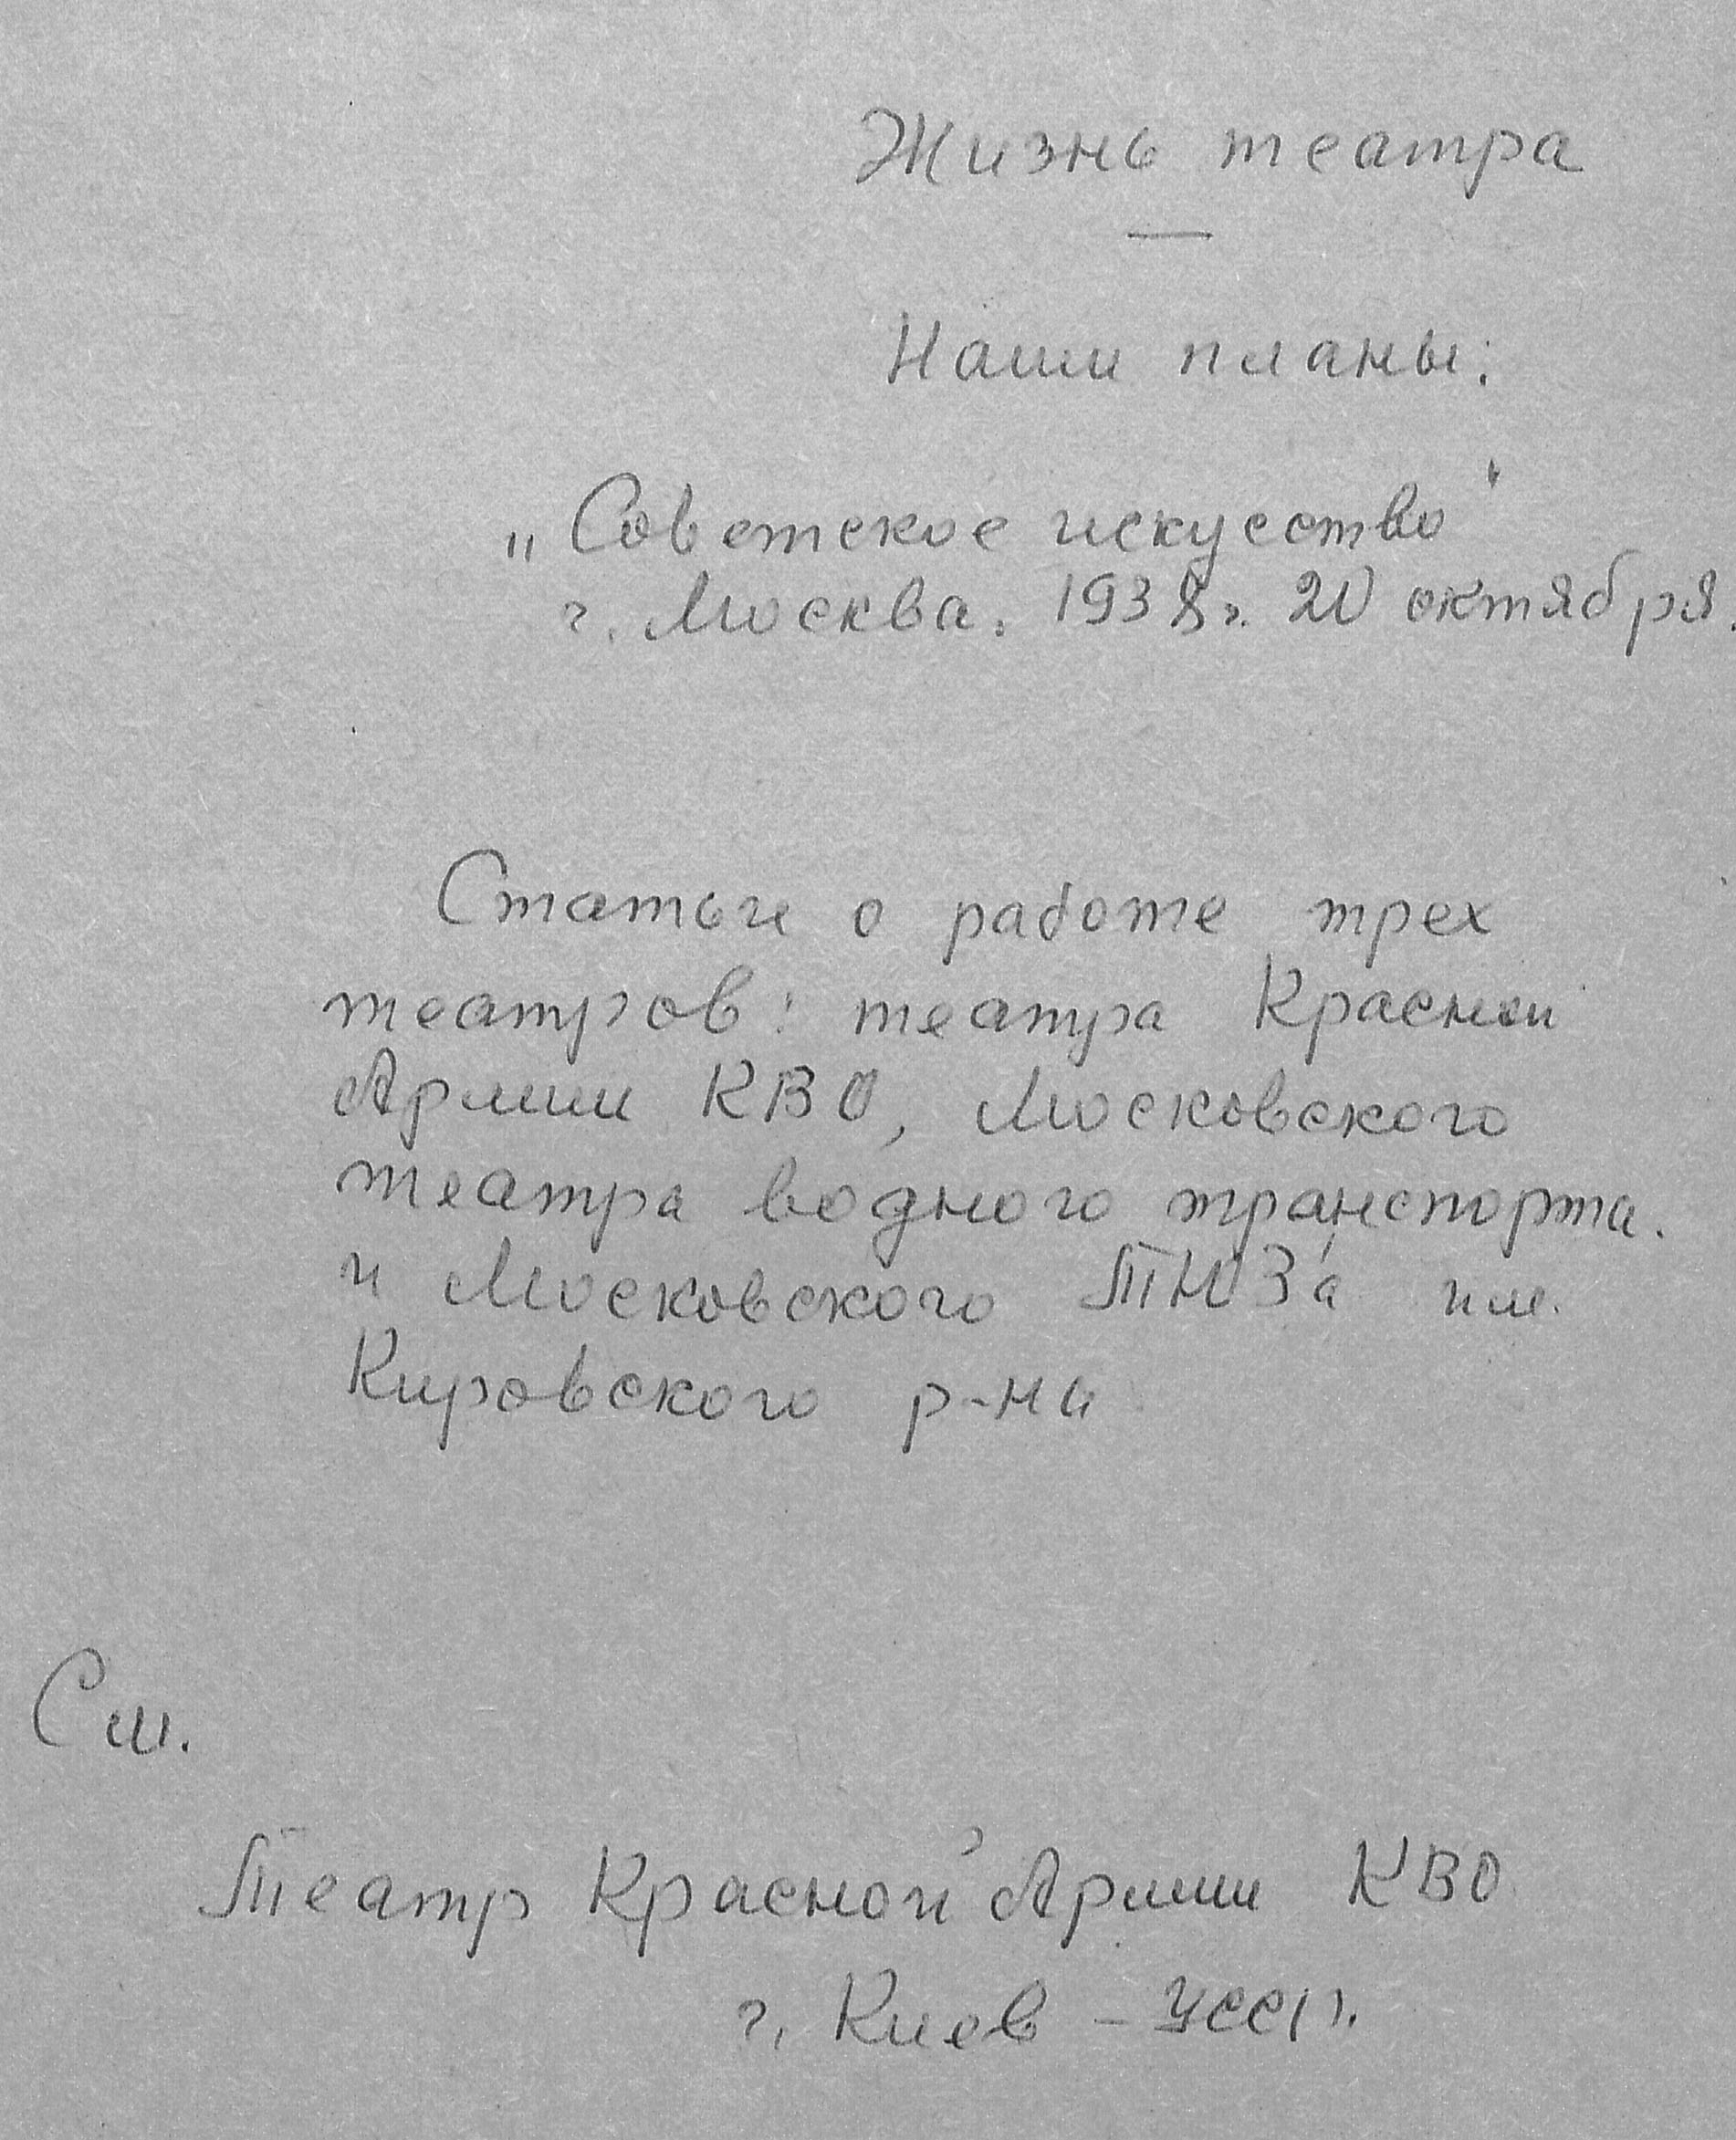 Жизнь театра
—
Наши планы:
„Советское искусство"
г. Москва. 1938 г. 20 октября.
Статьи о работе трех
театров: театра Красной
Армии КВО, Московского
театра водного транспорта.
и Московского ТЮЗ'а им.
Кировского р-на
См.
Театр Красной Армии КВО
г. Киев – УССР.